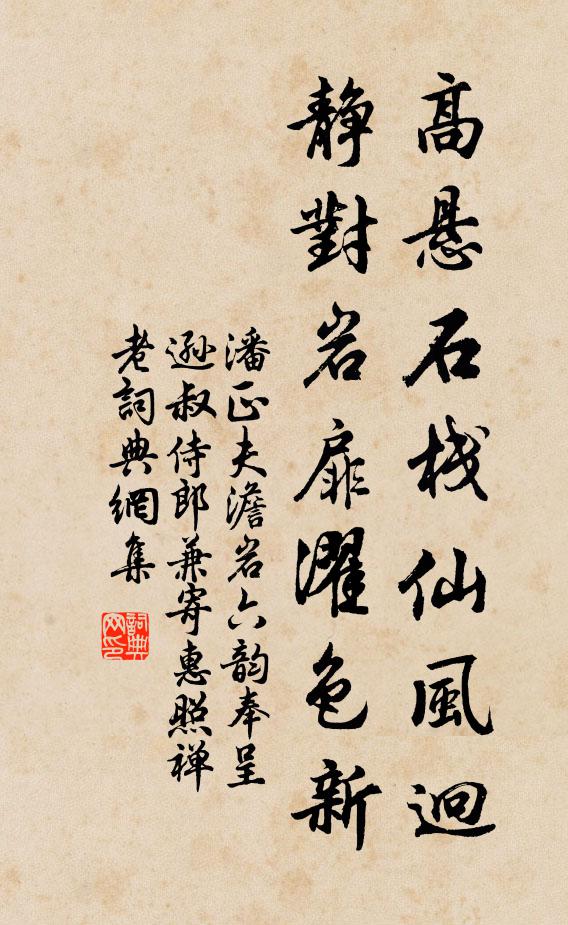 高悬石栈仙風迥
静對岩扉濯色新
潘正夫澹岩六韵奉呈
遜叔侍郎兼寄惠照禅
老詞典網集
詞典网印